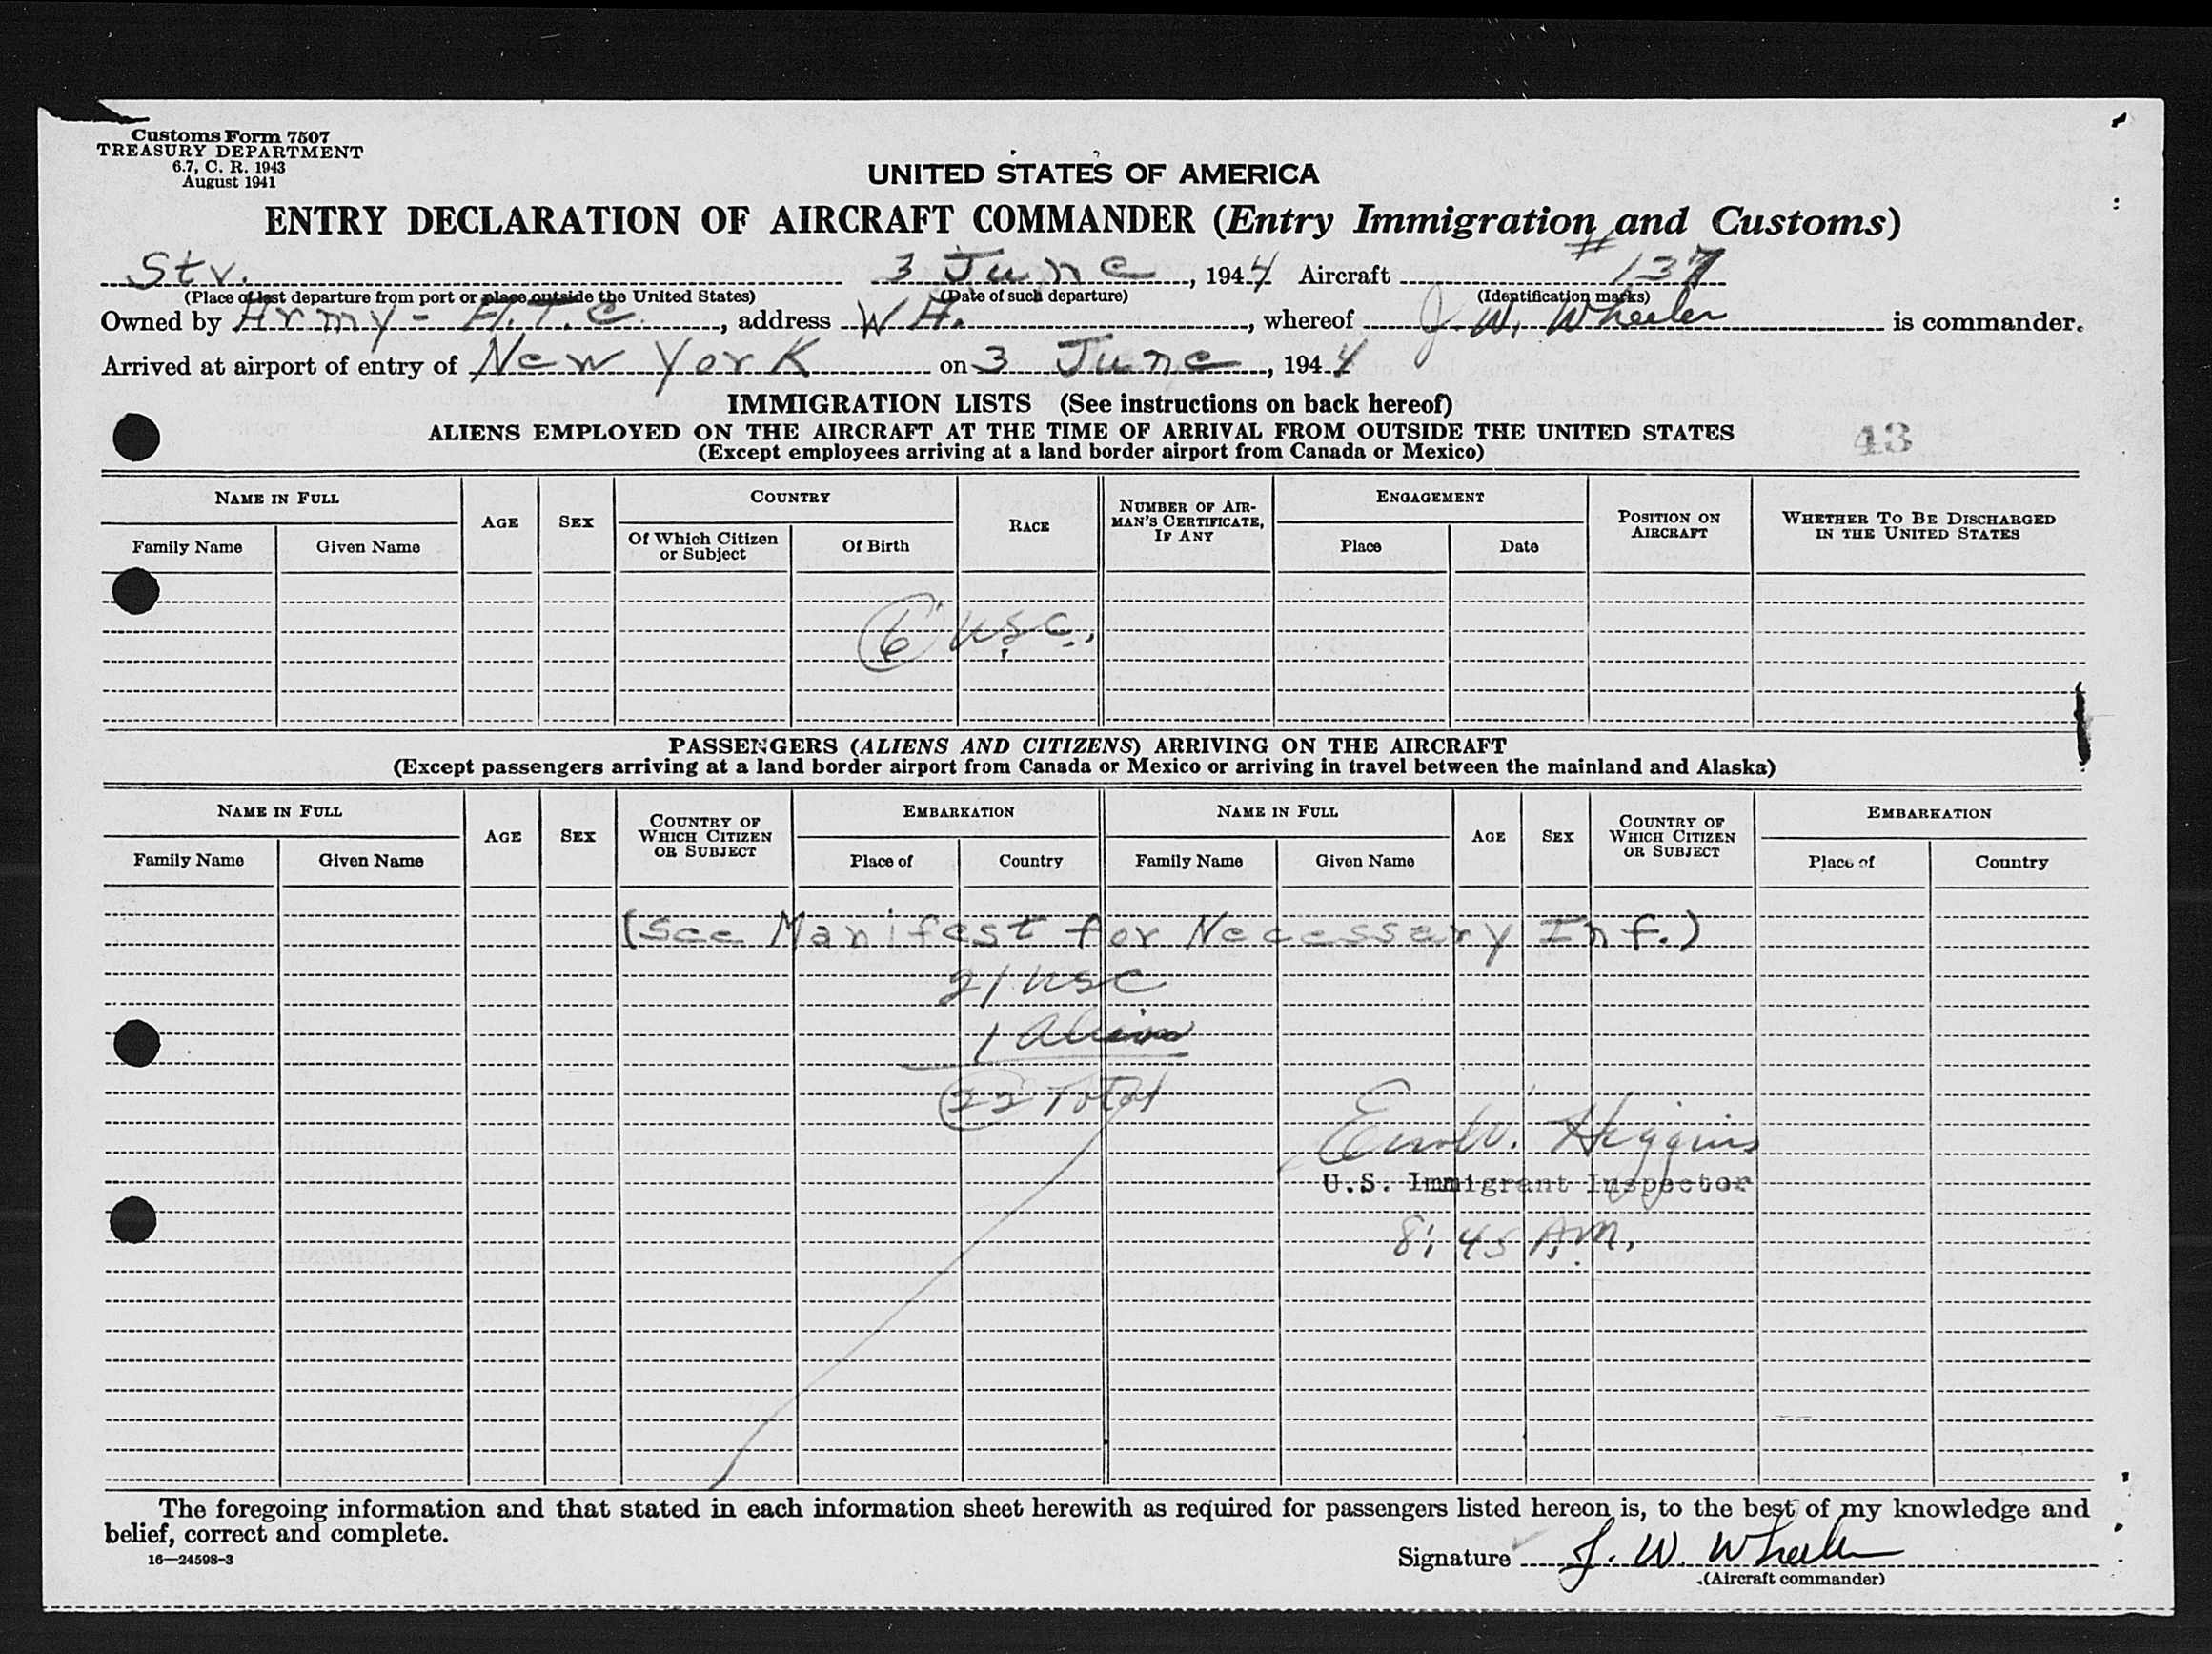 Customs Form 7507
TREASURY DEPARTMENT
6.7, C. R. 1943
August 1941
UNITED STATES OF AMERICA
ENTRY DECLARATION OF AIRCRAFT COMMANDER (Entry Immigration and Customs)
Stv. 3 June, 1944 Aircraft #137
(Place of last departure from port or place outside the United States) (Date of such departure) (Identification marks)
Owned by Army - A.T.C., address WA., whereof J. W. Wheeler is commander.
Arrived at airport of entry of New York on 3 June, 1944
IMMIGRATION LISTS (See instructions on back hereof)
ALIENS EMPLOYED ON THE AIRCRAFT AT THE TIME OF ARRIVAL FROM OUTSIDE THE UNITED STATES 43
(Except employees arriving at a land border airport from Canada or Mexico)
NAME IN FULL AGE SEX COUNTRY RACE NUMBER OF AIRMAN'S CERTIFICATE, IF ANY ENGAGEMENT POSITION ON AIRCRAFT WHETHER TO BE DISCHARGED IN THE UNITED STATES
Family Name Given Name Of Which Citizen or Subject Of Birth Place Date
6 USC.
PASSENGERS (ALIENS AND CITIZENS) ARRIVING ON THE AIRCRAFT
(Except passengers arriving at a land border airport from Canada or Mexico or arriving in travel between the mainland and Alaska)
NAME IN FULL AGE SEX COUNTRY OF WHICH CITIZEN OR SUBJECT EMBARKATION NAME IN FULL AGE SEX COUNTRY OF WHICH CITIZEN OR SUBJECT EMBARKATION
Family Name Given Name Place of Country Family Name Given Name Place of Country
(See Manifest for Necessary Inf.)
21 USC
1 Alien
22 Total
Higgins
U.S. Immigrant Inspector
8:45 A.M.
The foregoing information and that stated in each information sheet herewith as required for passengers listed hereon is, to the best of my knowledge and
belief, correct and complete.
16—24598-3
Signature J. W. Wheeler
(Aircraft commander)